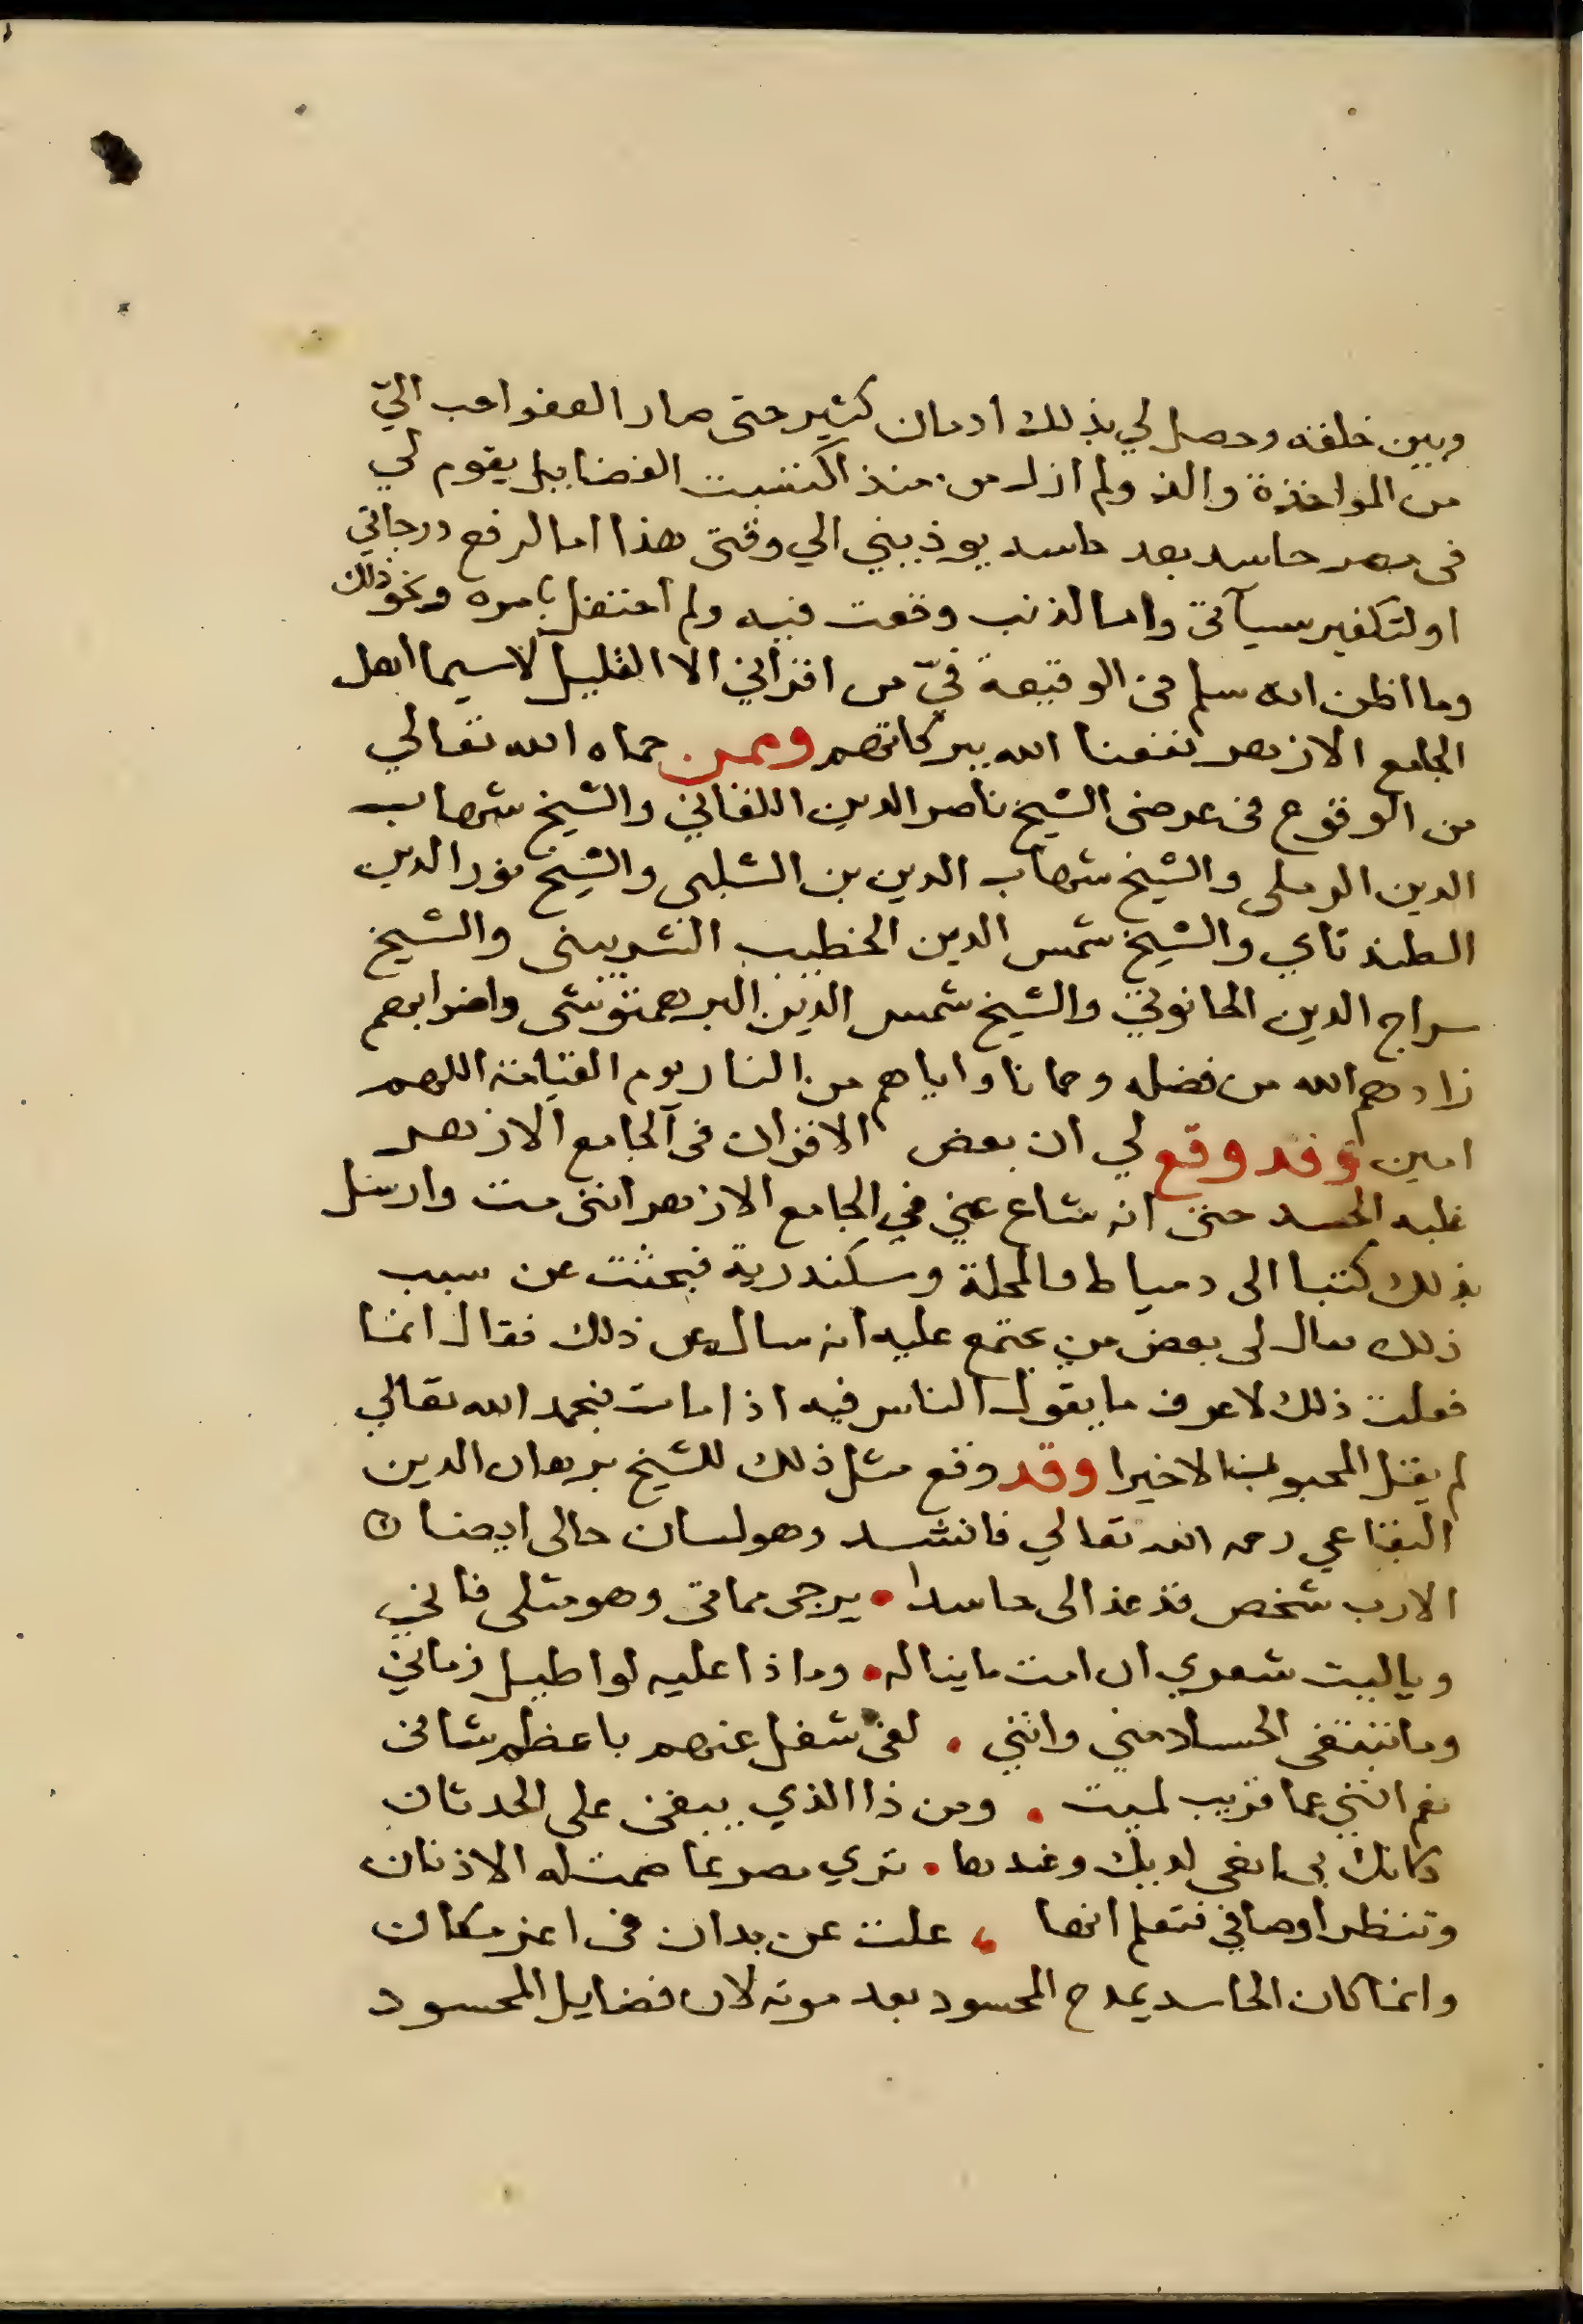 وبين خلقه وحصل لي بذلك ادمان كثير حتى صار العفو احب الي
من المواخذة والذ ولم ازل من منذ اكتسبت الفضايل يقوم لي
في مصر حاسد بعد حاسد يوذيني الي وقتي هذا اما لرفع درجاتي
او لتكفير سيآتي واما لذنب وقعت فيه ولم احتفل بامره ونحو ذلك
وما اظن انه سلم من الوقيعة فيّ من اقراني الا القليل لاسيما اهل
الجامع الازهر نفعنا الله ببركاتهم وممن حماه الله تعالي
من الوقوع في عرضي الشيخ ناصر الدين اللقاني والشيخ شهاب
الدين الرملي والشيخ شهاب الدين بن الشلبي والشيخ نور الدين
الطندتاي والشيخ شمس الدين الخطيب الشربيني والشيخ
سراج الدين الحانوتي والشيخ شمس الدين البرهمتوشي واضرابهم
زادهم الله من فضله وحمانا واياهم من النار يوم القيامة اللهم
امين وقد وقع لي ان بعض الاقران في الجامع الازهر
غلبه الحسد حتى انه شاع عني في الجامع الازهر انني مت وارسل
بذلك كتبا الى دمياط والمحلة وسكندرية فبحثت عن سبب
ذلك فقال لي بعض من يجتمع عليه انه ساله عن ذلك فقال انما
فعلت ذلك لاعرف ما يقول الناس فيه اذا مات فبحمد الله تعالي
لم يقل المحبون لنا الا خيرا وقد وقع مثل ذلك للشيخ برهان الدين
البقاعي رحمه الله تعالي فانشد وهو لسان حالي ايضا
الا رب شخص قد غدا لي حاسدا • يرجى مماتي وهو مثلي فاني
ويا ليت شعري ان امت ما يناله • وماذا عليه لو اطيل زماني
وما تبتغي الحساد مني وانني • لفي شغل عنهم باعظم شاني
نعم انني عما قريب لميت • ومن ذا الذي يبقى على الحدثان
كانك بي انعى لديك وعندها • تري مصرعا صمت له الاذنان
وتنظر اوصافي فتعلم انها • علت عن بدان في اعز مكان
وانما كان الحاسد يمدح المحسود بعد موته لان فضايل المحسود